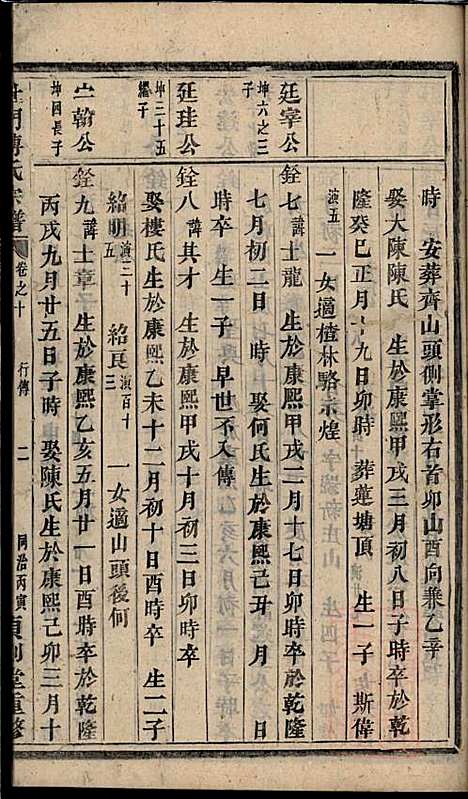 時　安葬齊山頭側掌形右首卯山酉向兼乙辛
娶大陳陳氏　生於康熙甲戌三月初八日子時卒於乾
隆癸巳正月十九日卯時　葬蓮塘頂　生一子　斯偉
演五　一女適楂林駱宗煌
廷宰公
坤六之三
子
銓七　諱士龍　生於康熙甲戌二月十七日卯時卒於乾隆
七月初二日　時　娶何氏生於康熙己丑　月　日
時卒　生一子　早世不入傳
廷珪公
坤二十五
繼子
銓八　諱其才　生於康熙甲戌十月初三日卯時卒
娶樓氏生於康熙乙未十二月初十日酉時卒　生二子
紹明　演二十五　紹良　演百十三　一女適山頭後何
翰公
坤四長子
銓九　諱士章　生於康熙乙亥五月廿一日酉時卒於乾隆
丙戌九月廿五日子時　娶陳氏生於康熙己卯三月十
傅氏宗譜　卷之十　行傳　二　同治丙寅　堂重修